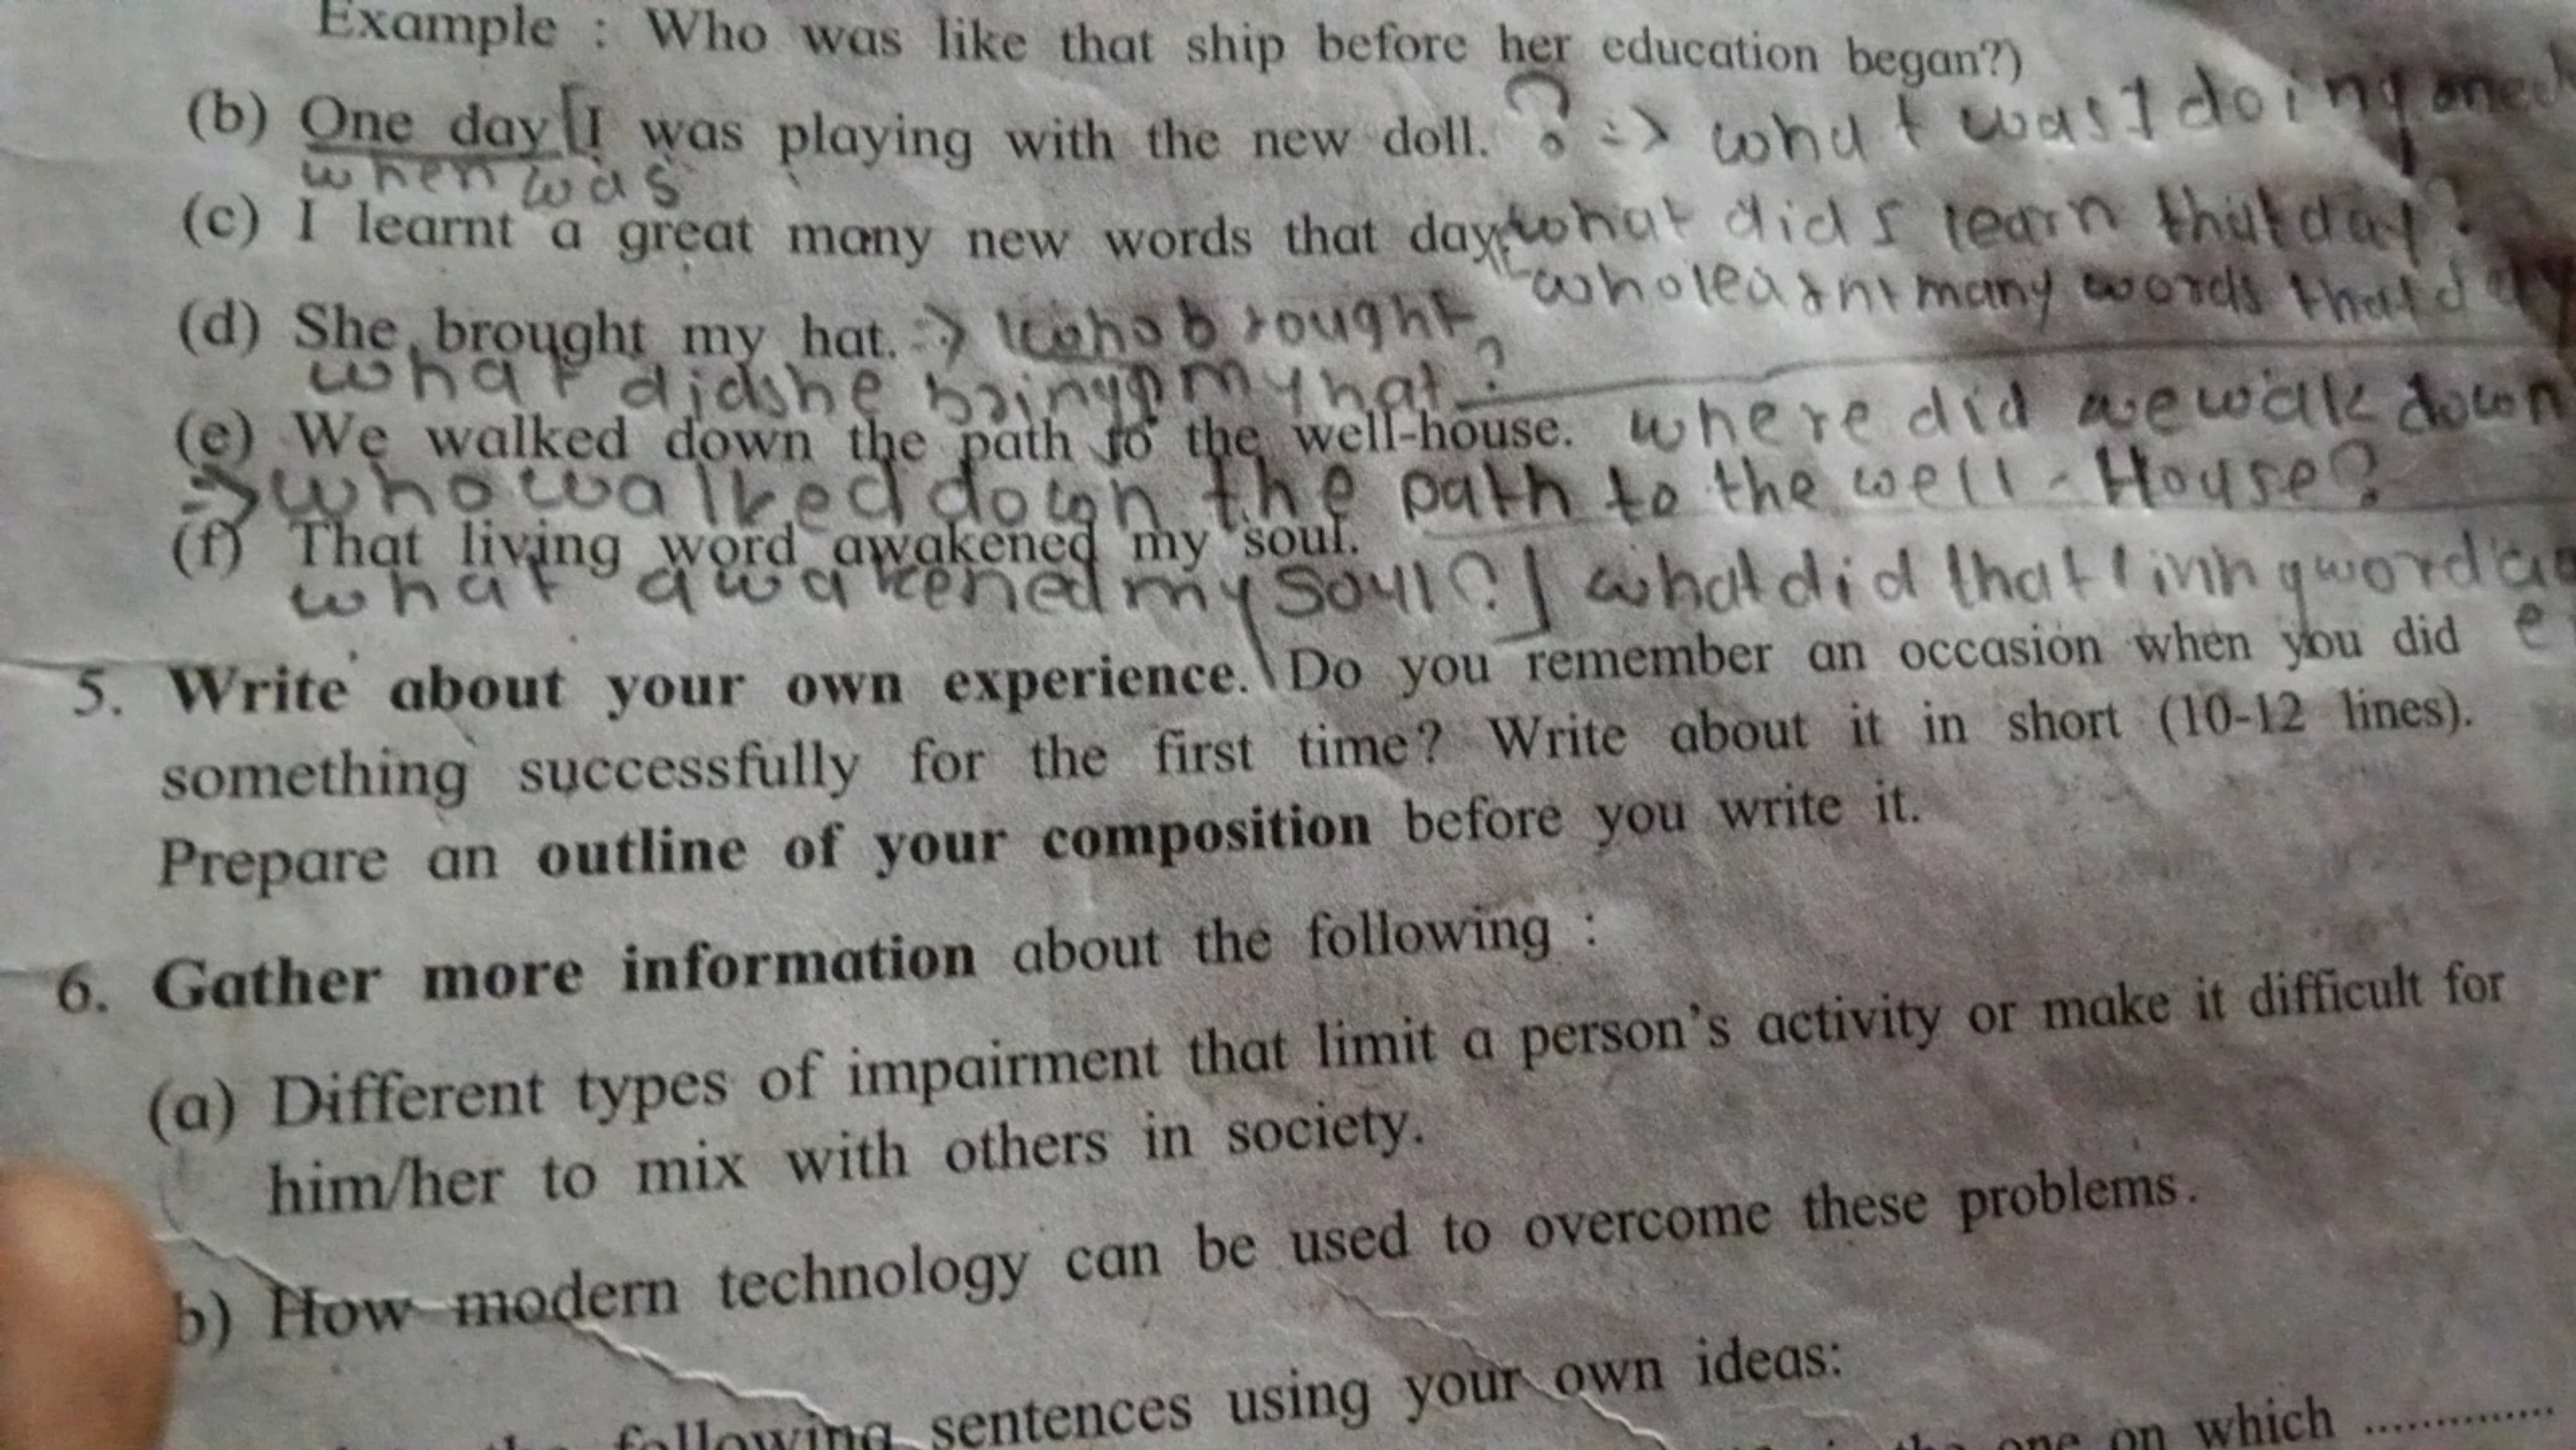 Example : Who was like that ship before her education began?)
(b) One day [I was playing with the new doll. ? => what was I doing
when was
(c) I learnt a great many new words that day. what did I learn that day?
who learnt many words that day
(d) She brought my hat. -> who brought
what did she bring my hat ?
(e) We walked down the path to the well-house. where did we walk down
=> who walked down the path to the well - House?
(f) That living word awakened my soul.
what awakened my soul?] what did that word
5. Write about your own experience. Do you remember an occasion when you did
something successfully for the first time? Write about it in short (10-12 lines).
Prepare an outline of your composition before you write it.
6. Gather more information about the following :
(a) Different types of impairment that limit a person's activity or make it difficult for
him/her to mix with others in society.
b) How modern technology can be used to overcome these problems.
following sentences using your own ideas:
the one on which ...............